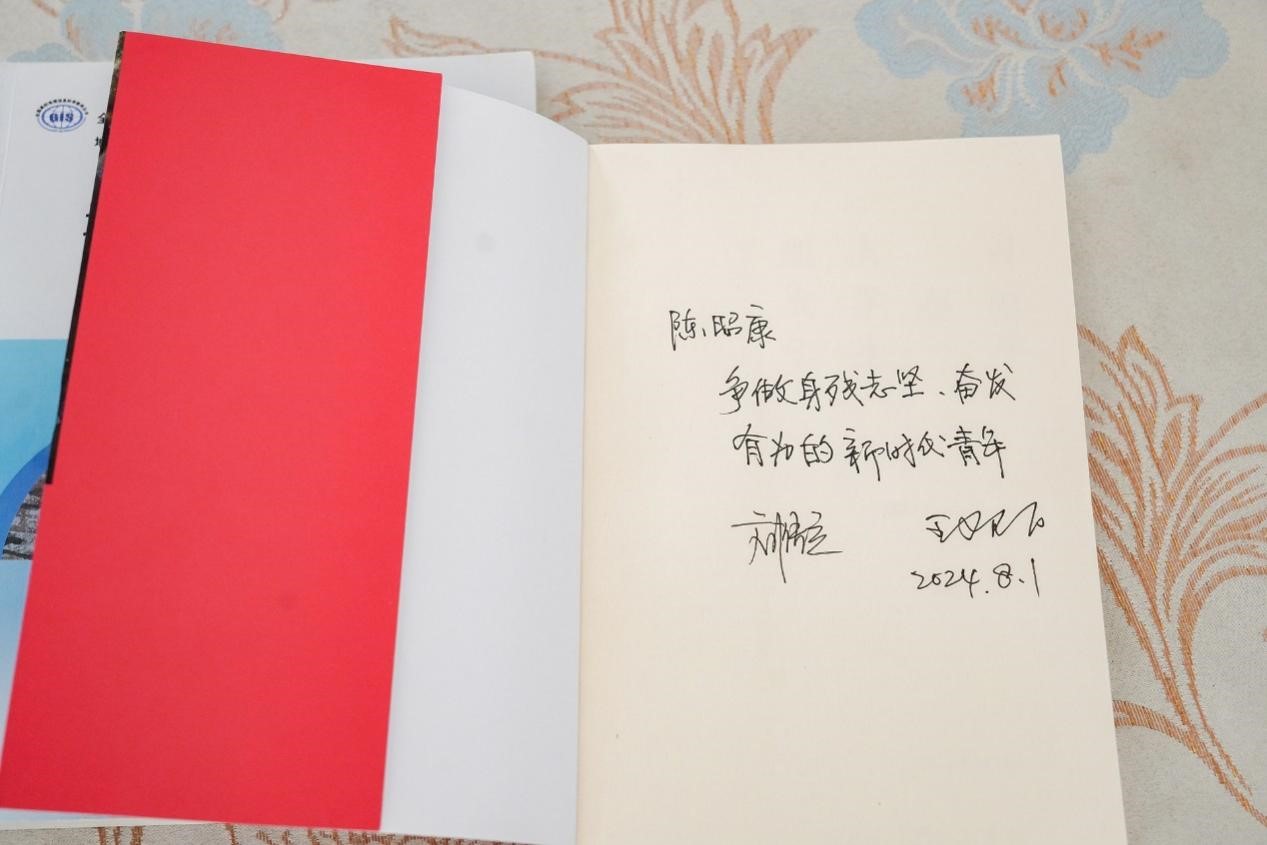 GIS
陈昭康
争做身残志坚、奋发
有为的新时代青年
2024.8.1